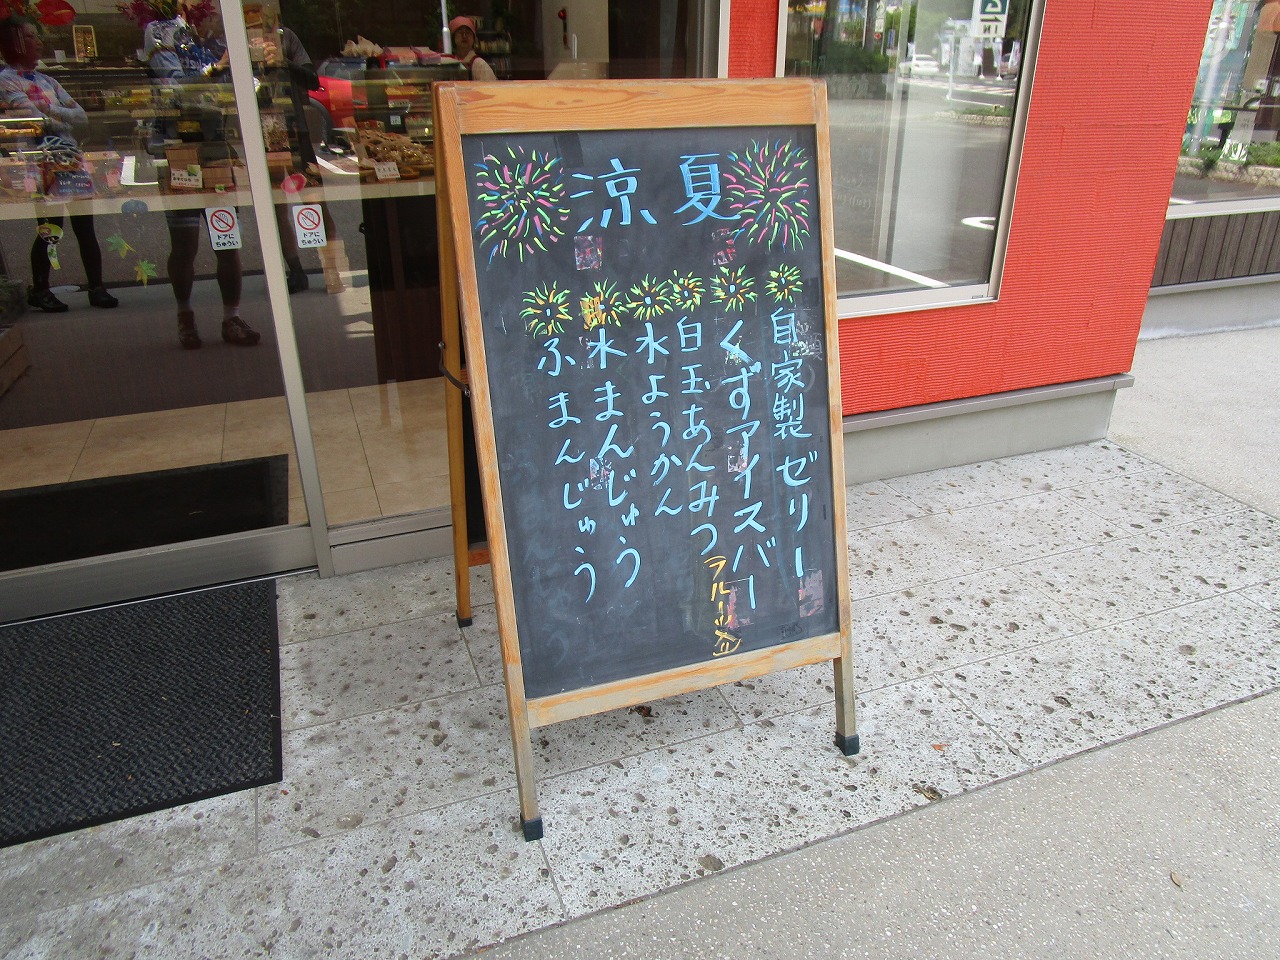 夏涼
自家製ゼリー
くずアイスバー
白玉あんみつ
フルーツ
水ようかん
水まんじゅう
ふまんじゅう
ドアに
ちゅうい
ドアに
ちゅうい